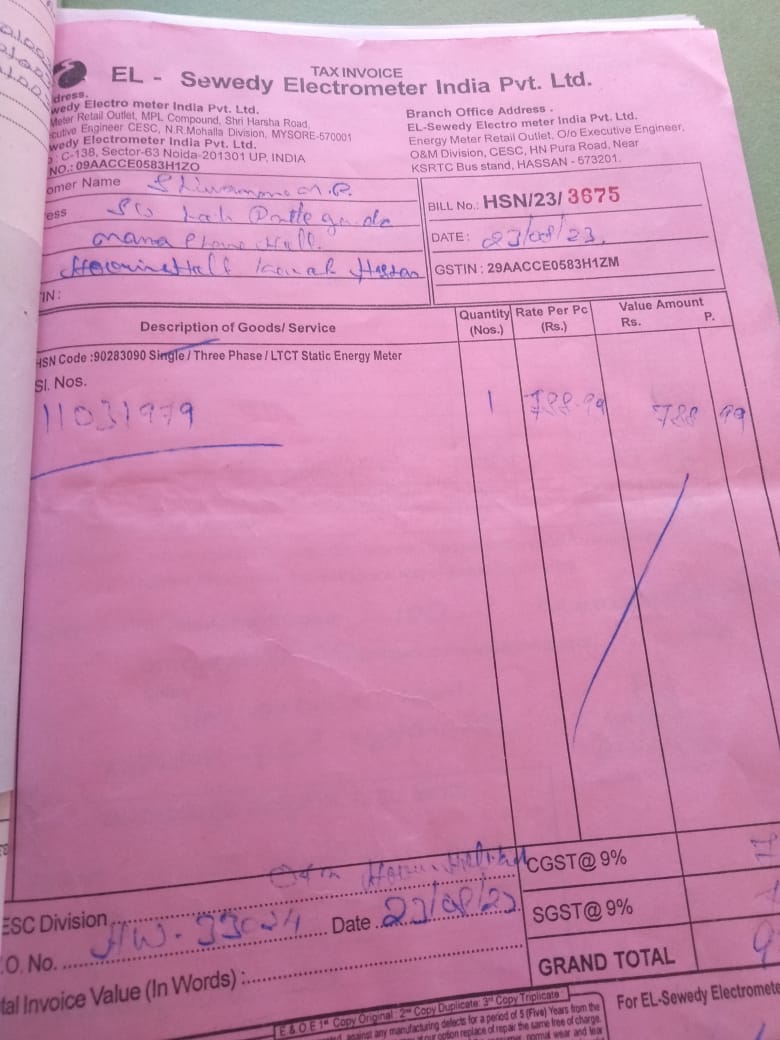 TAX INVOICE
EL - Sewedy Electrometer India Pvt. Ltd.
dress.
wedy Electro meter India Pvt. Ltd.
Meter Retail Outlet, MPL Compound, Shri Harsha Road,
cutive Engineer CESC, N.R.Mohalla Division, MYSORE-570001
wedy Electrometer India Pvt. Ltd.
: C-138, Sector-63 Noida-201301 UP, INDIA
NO.: 09AACCE0583H1ZO
Branch Office Address .
EL-Sewedy Electro meter India Pvt. Ltd.
Energy Meter Retail Outlet, O/o Executive Engineer,
O&M Division, CESC, HN Pura Road, Near
KSRTC Bus stand, HASSAN - 573201.
omer Name
ess
IN :
BILL No.: HSN/23/ 3675
DATE : 23/08/23.
GSTIN : 29AACCE0583H1ZM
Description of Goods/ Service
Quantity (Nos.)
Rate Per Pc (Rs.)
Value Amount
Rs. P.
HSN Code :90283090 Single / Three Phase / LTCT Static Energy Meter
Sl. Nos.
11031979 1 788.99 788 99
CGST@ 9%
SGST@ 9%
GRAND TOTAL
ESC Division
.O. No. Date 23/08/23
tal Invoice Value (In Words) :
E & O.E 1st Copy Original : 2nd Copy Duplicate: 3rd Copy Triplicate
against any manufacturing defects for a period of 5 (Five) Years from the
option replace of repair the same free of charge.
normal wear and tear
For EL-Sewedy Electromete